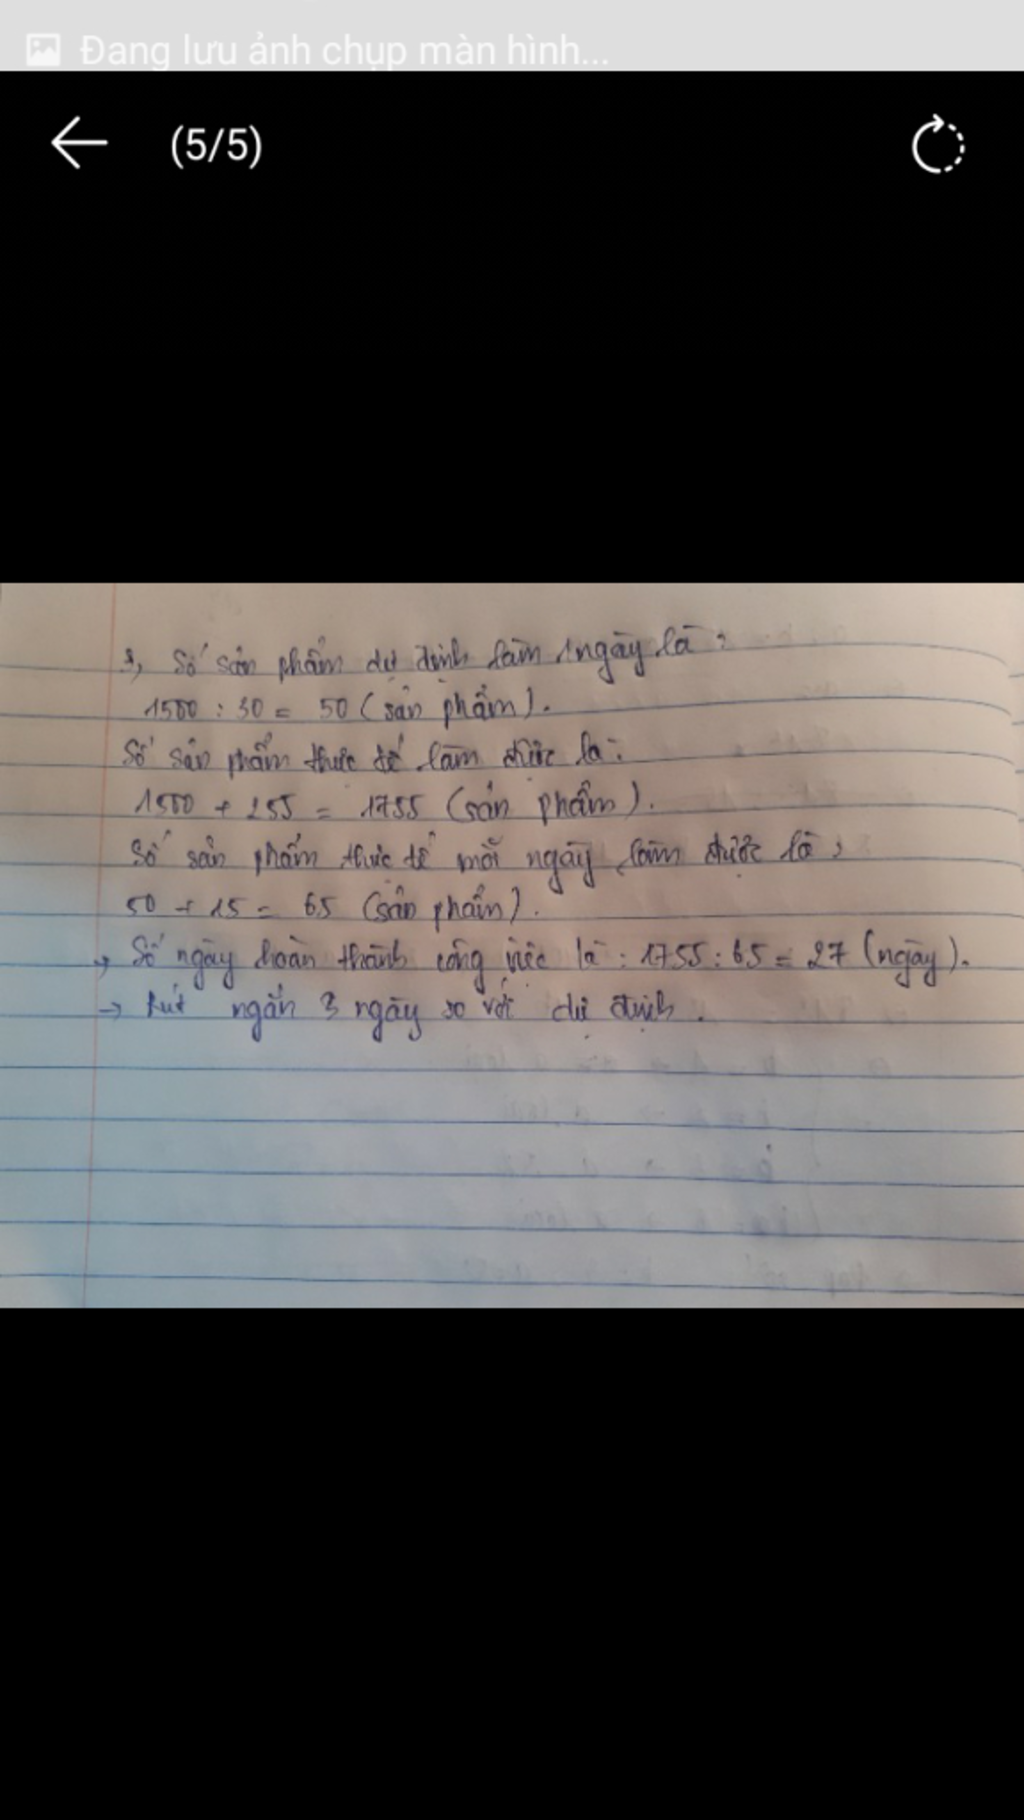 Đang lưu ảnh chụp màn hình...
(5/5)
3, Số sản phẩm dự định làm 1 ngày là:
1500 : 30 = 50 (sản phẩm).
Số sản phẩm thực tế làm được là:
1500 + 255 = 1755 (sản phẩm).
Số sản phẩm thực tế mỗi ngày làm được là:
50 + 15 = 65 (sản phẩm).
→ Số ngày hoàn thành công việc là : 1755 : 65 = 27 (ngày).
→ Rút ngắn 3 ngày so với dự định.